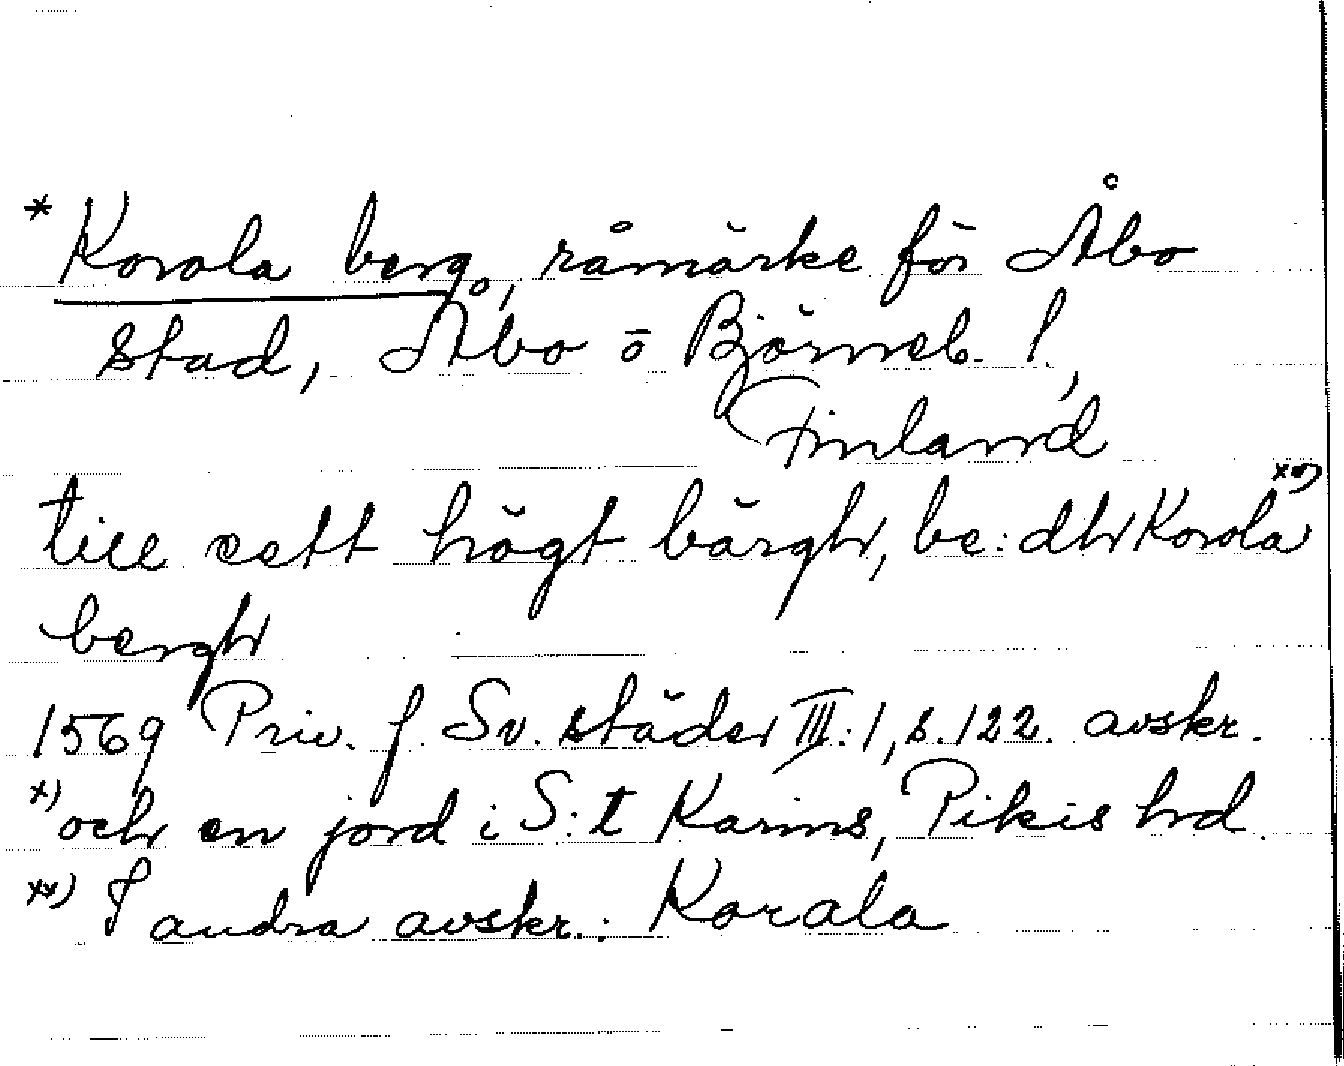 * Korola berg, råmärke för Åbo
stad, Åbo o Björneb. l.,
Finland
till eett högt bärgh, be: dh Korola xx)
bergh
1569 Priv. f. Sv. städer III:1, s. 122. avskr.
x) och en jord i S:t Karins, Pikis hd.
xx) I andra avskr.: Korala